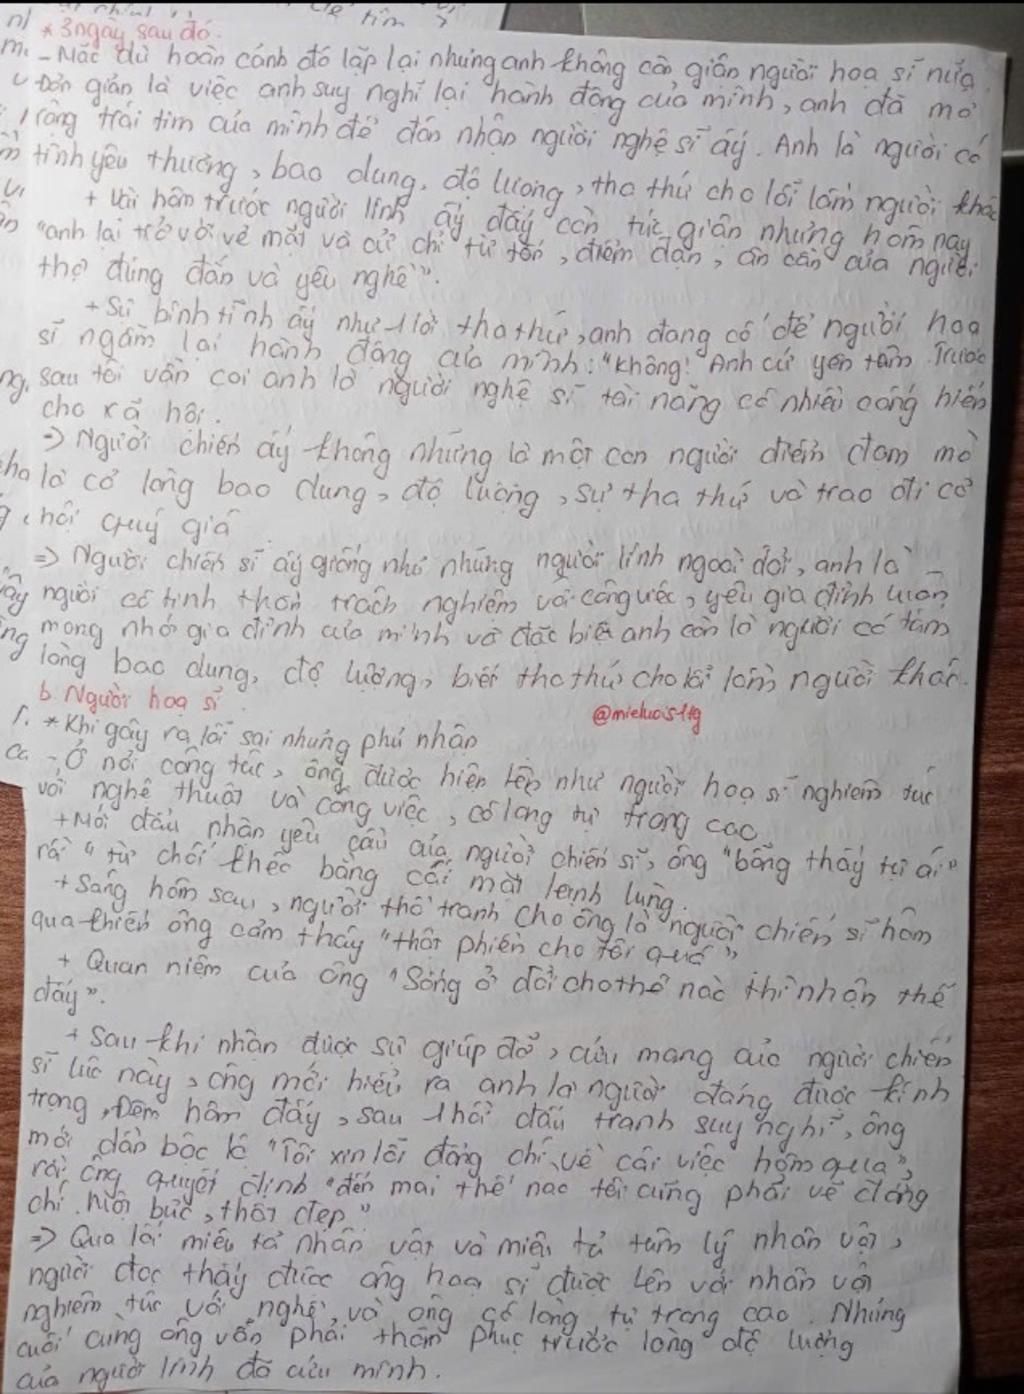 * 3 ngày sau đó.
- Mặc dù hoàn cảnh đó lặp lại nhưng anh không còn giận người hoạ sĩ nữa.
Đơn giản là việc anh suy nghĩ lại hành động của mình, anh đã mở
rộng trái tim của mình để đón nhận người nghệ sĩ ấy. Anh là người có
tình yêu thương, bao dung, độ lượng, tha thứ cho lỗi lầm người khác
+ Vài hôm trước người lính ấy đầy cơn tức giận nhưng hôm nay
"anh lại trở với vẻ mặt và cử chỉ từ tốn, điềm đạm, ân cần của người
thợ đúng đắn và yêu nghề".
+ Sự bình tĩnh ấy như 1 lời tha thứ, anh đang cố để người hoạ
sĩ ngẫm lại hành động của mình: "Không! Anh cứ yên tâm. Trước
sau tôi vẫn coi anh là người nghệ sĩ tài năng có nhiều cống hiến
cho xã hội.
=> Người chiến ấy không những là một con người điềm đạm mà
là có lòng bao dung, độ lượng, sự tha thứ và trao đi cơ
hội quý giá
=> Người chiến sĩ ấy giống như những người lính ngoài đời, anh là
người có tinh thần trách nghiệm với công việc, yêu gia đình luôn
mong nhớ gia đình của mình và đặc biệt anh còn là người có tấm
lòng bao dung, độ lượng, biết tha thứ cho lỗi lầm người khác.
b. Người hoạ sĩ.
@mieluois1tg
* Khi gây ra lỗi sai nhưng phủ nhận
- Ở nơi công tác, ông được hiện lên như người hoạ sĩ nghiêm túc
với nghệ thuật và công việc, có lòng tự trọng cao
+ Mới đầu nhận yêu cầu của người chiến sĩ, ông "bỗng thấy tự ái"
rồi "từ chối khéo bằng cái mặt lạnh lùng.
+ Sáng hôm sau, người thồ tranh cho ông là người chiến sĩ hôm
qua khiến ông cảm thấy "thật phiền cho tôi quá"
+ Quan niệm của ông "Sống ở đời cho thế nào thì nhận thế
đấy".
+ Sau khi nhận được sự giúp đỡ, cứu mang của người chiến
sĩ lúc này, ông mới hiểu ra anh là người đáng được kính
trọng, Đêm hôm đấy, sau 1 hồi đấu tranh suy nghĩ, ông
mới dần bộc lộ "Tôi xin lỗi đồng chí về cái việc hôm qua",
rồi ông quyết định "đến mai thế nào tôi cũng phải vẽ đồng
chí. Một bức, thật đẹp"
=> Qua lối miêu tả nhân vật và miêu tả tâm lý nhân vật,
người đọc thấy được ông hoạ sĩ được lên với nhân vật
nghiêm túc với nghề và ông có lòng tự trọng cao. Nhưng
cuối cùng ông vẫn phải thán phục trước lòng độ lượng
của người lính đã cứu mình.